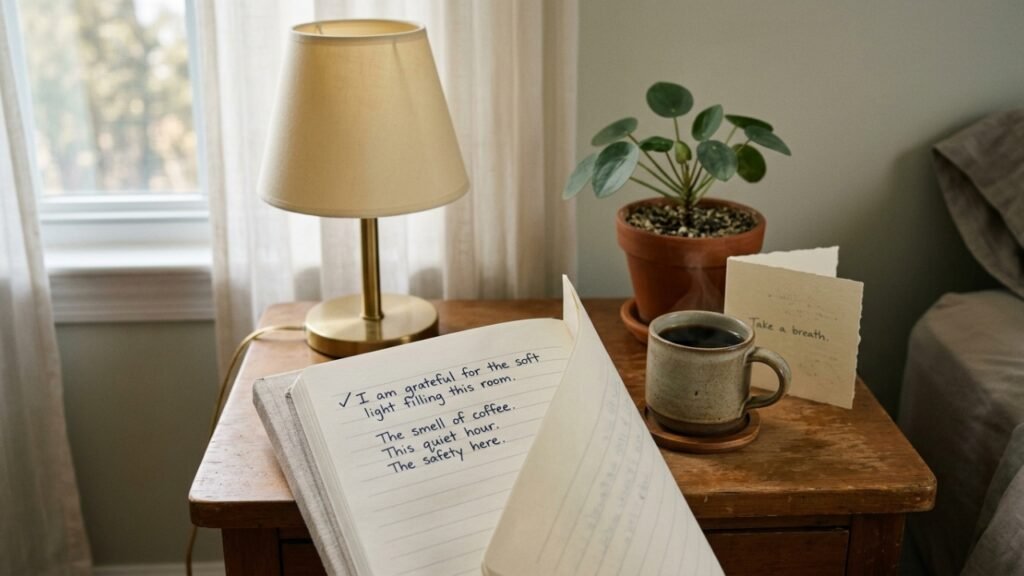 ✓ I am grateful for the soft
light filling this room.
The smell of coffee.
This quiet hour.
The safety here.
Take a breath.